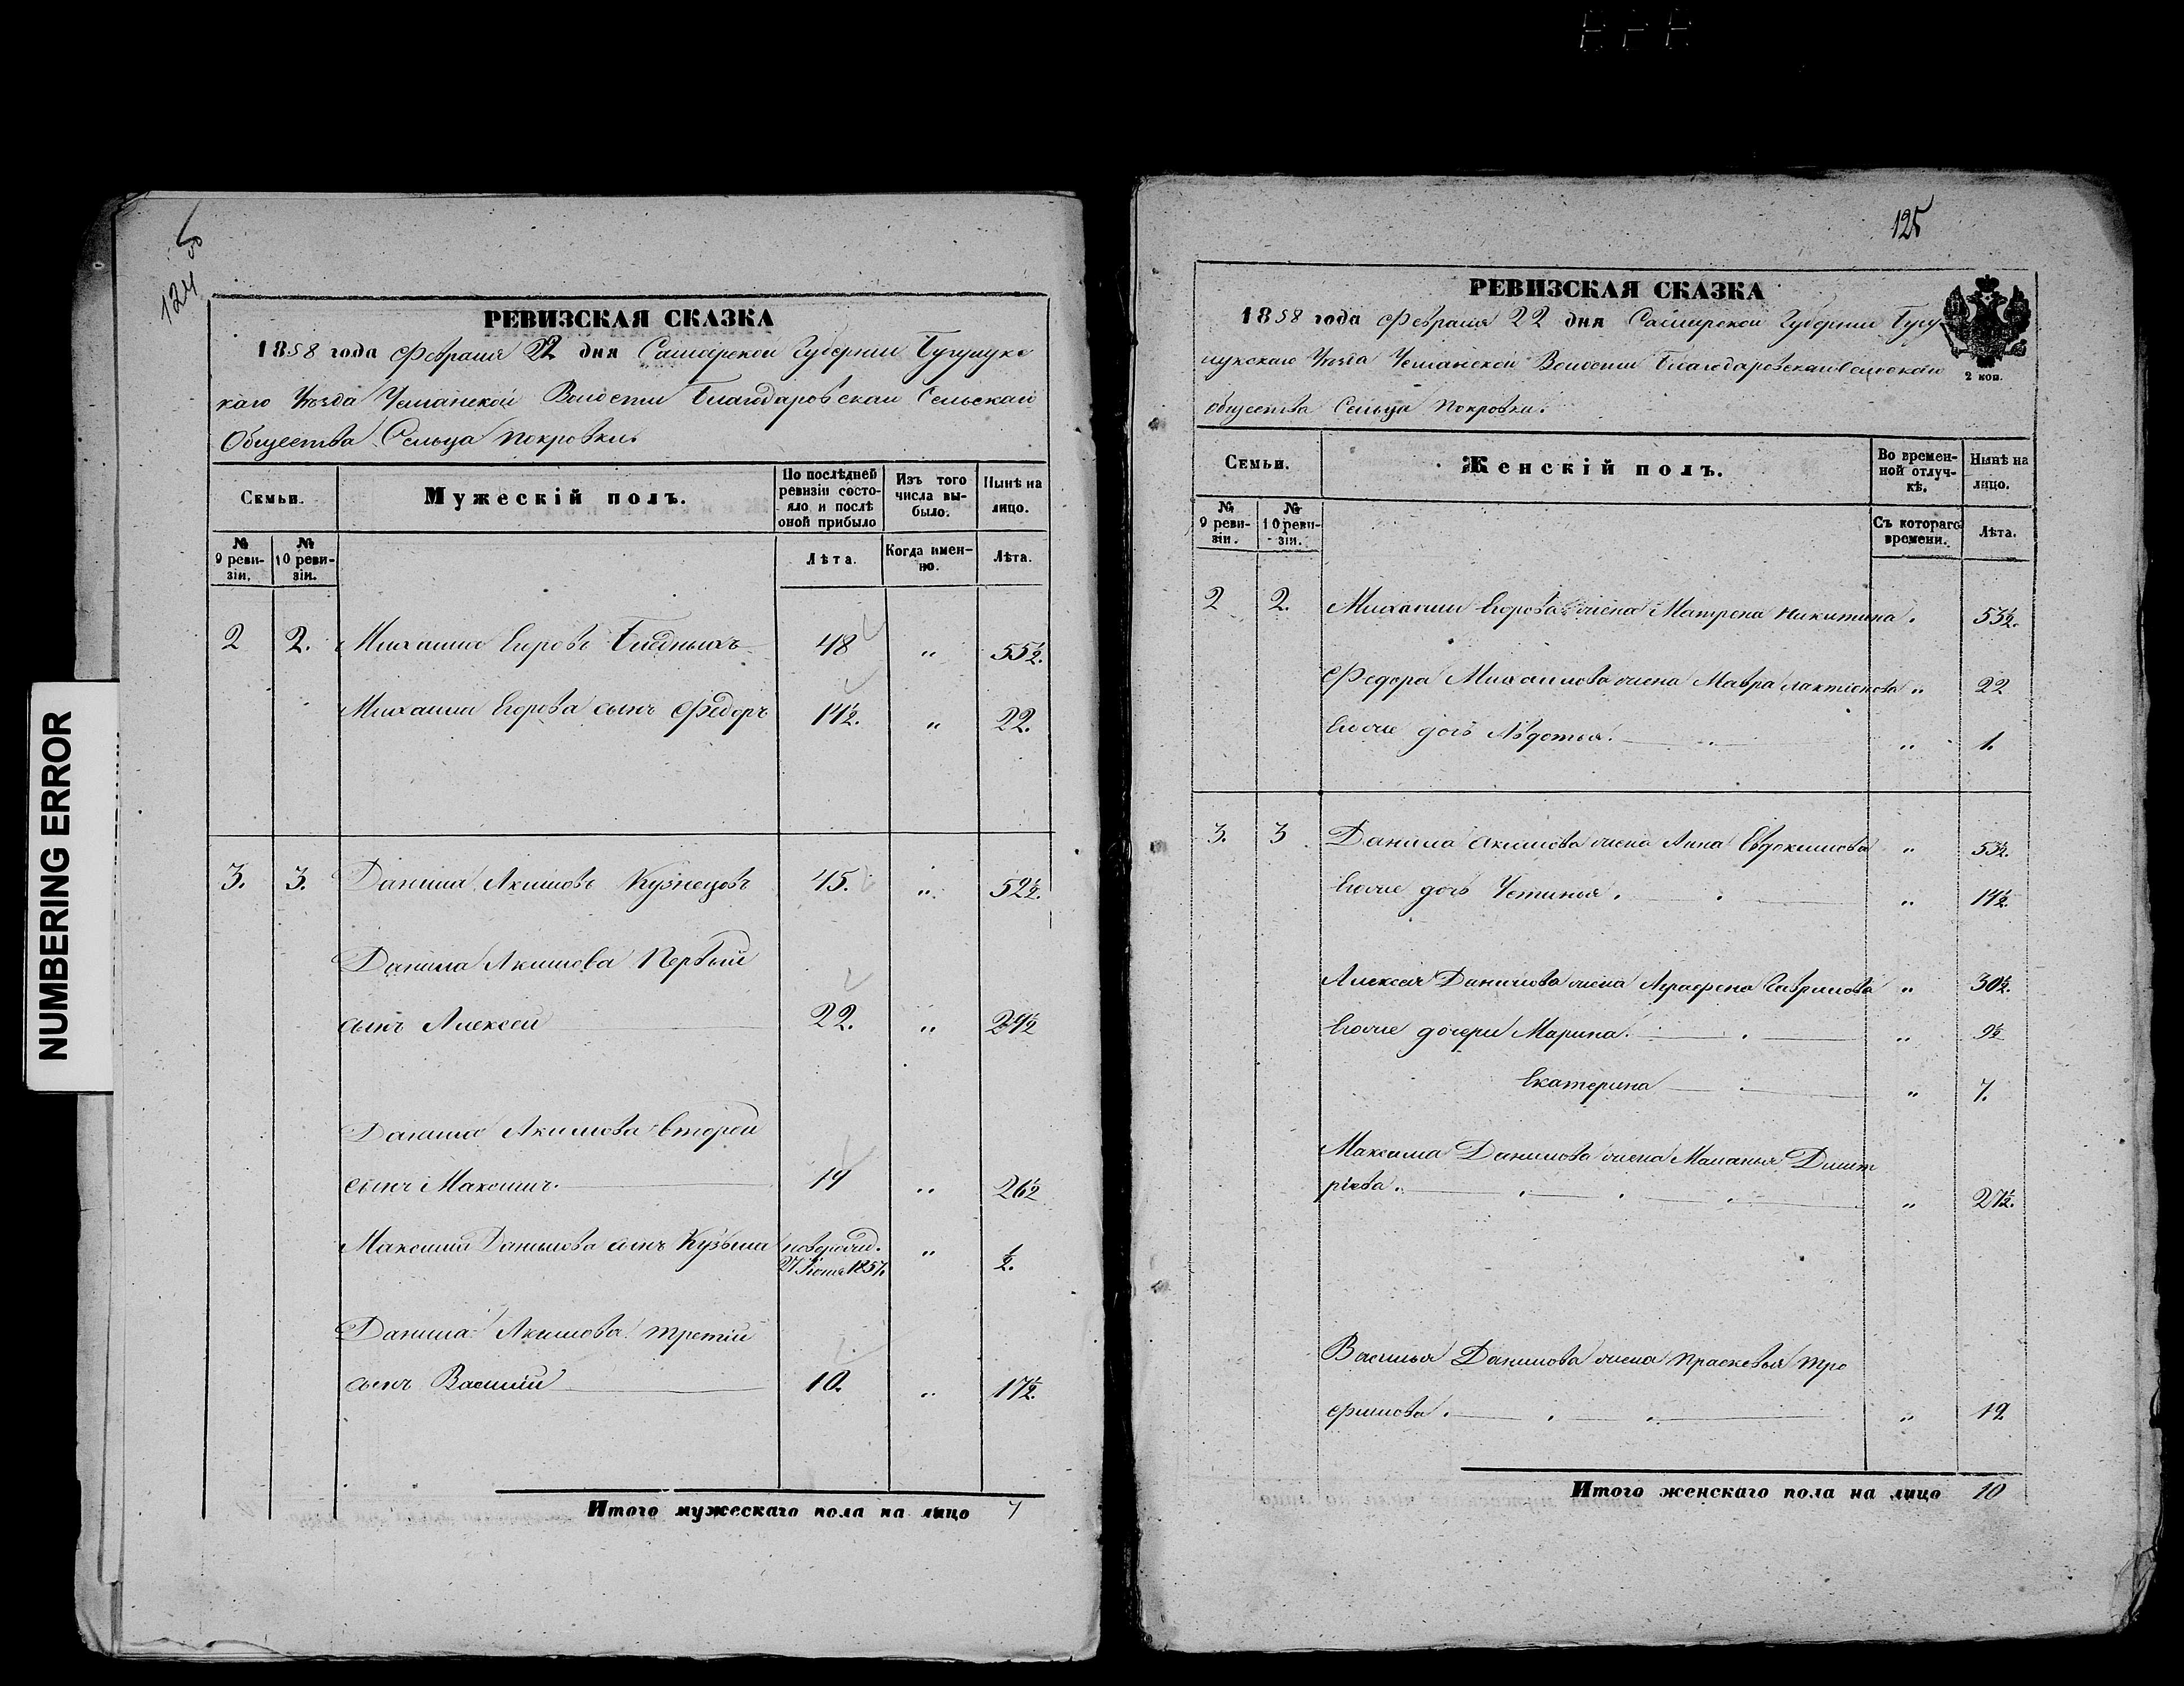 NUMBERING ERROR
124
5
РЕВИЗСКАЯ СКАЗКА
1858 года Февраля 22 дня Самарской Губерніи Бугурукс
каго Уѣзда Волости Благодаровскаго Сельскаго
Общества Сельца Покровки.
Семьи.
Мужескій полъ.
По послѣдней ревизіи состояло и послѣ оной прибыло
Изъ того числа выбыло.
Ныне на лицо.
№ 9 ревизіи.
№ 10 ревизіи.
Лѣта.
Когда именно.
Лѣта.
2 2. Михаила Егоровъ Бледныхъ 48 " 55½.
Михаила Егорова сынъ Федоръ 14½. " 22.
3. 3. Данила Акимовъ Кузнецовъ 45. " 52½.
Данила Акимова Первый
сынъ Алексей 22. " 29½
Данила Акимова второй
сынъ Максимъ. 19 " 26½
Максима Данилова сынъ Кузьма новорожд. " ½.
1857.
Данила Акимова третій
сынъ Василий 10. " 17½.
Итого мужескаго пола на лицо 7
125
РЕВИЗСКАЯ СКАЗКА
1858 года Февраля 22 дня Самарской Губерніи Бугу
рукскаго Уѣзда Волости Благодаровскаго Сельскаго
общества Сельца Покровки.
2 коп.
Семьи.
Женскій полъ.
Во временной отлучкѣ.
Нынѣ на лицо.
№ 9 ревизіи.
№ 10 ревизіи.
Съ котораго времени.
Лѣта.
2 2. Михаила Егорова жена Матрена Никитина. 53½.
Федора Михаилова жена Мавра Лактіонова " 22
Егоже дочь Авдотья. " 1.
3. 3 Данила Акимова жена Анна Евдокимова " 53½.
Егоже дочь Устинья. " 14½.
Алексея Данилова жена Аграфена Гаврилова " 30½.
Егоже дочери Марина. " 9½
Екатерина " 7.
Максима Данилова жена Маланья Димит
ріева. " 27½.
Василья Данилова жена Прасковья Тро
фимова. " 19.
Итого женскаго пола на лицо 10